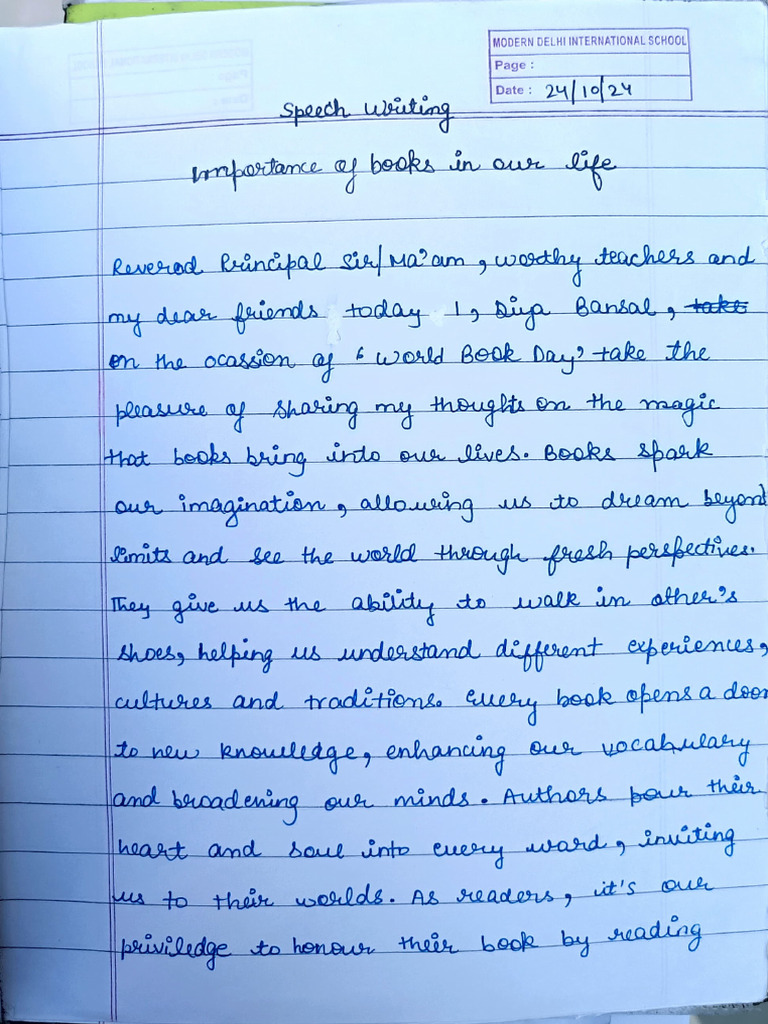 MODERN DELHI INTERNATIONAL SCHOOL
Page :
Date : 24/10/24
Speech Writing
Importance of books in our life
Revered Principal Sir/Ma'am, worthy teachers and
my dear friends today I, Diya Bansal, take
on the ocassion of 'World Book Day' take the
pleasure of sharing my thoughts on the magic
that books bring into our lives. Books spark
our imagination, allowing us to dream beyond
limits and see the world through fresh perspectives.
They give us the ability to walk in other's
shoes, helping us understand different experiences,
cultures and traditions. Every book opens a door
to new knowledge, enhancing our vocabulary
and broadening our minds. Authors pour their
heart and soul into every word, inviting
us to their worlds. As readers, it's our
priviledge to honour their book by reading